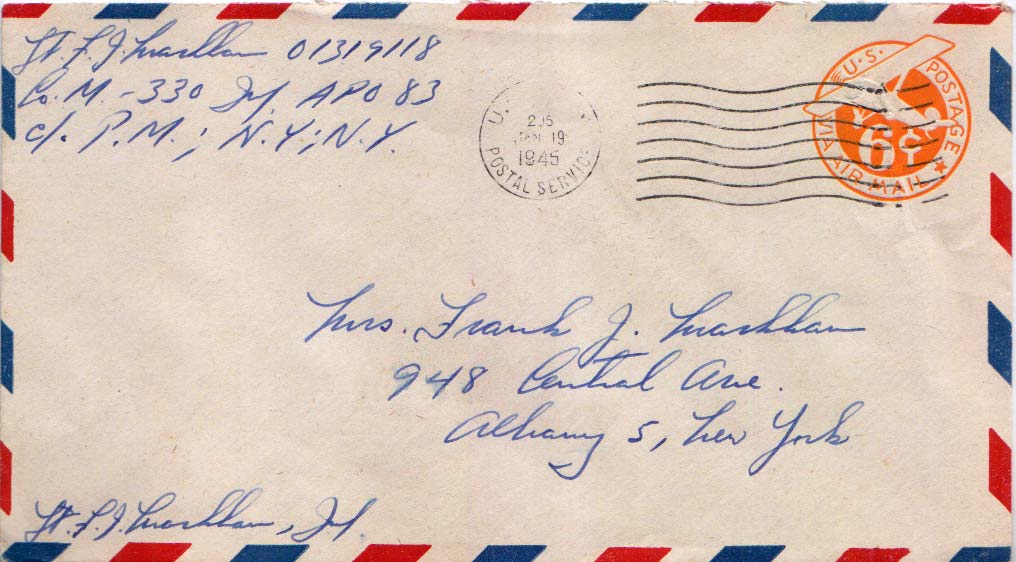 Lt. F. J. 01319118
Co. M. - 330 Inf. APO 83
c/o P.M.; N.Y.; N.Y.
U. S.
205
JAN 19
1945
POSTAL SERVICE
U.S. POSTAGE
6¢
VIA AIR MAIL
Mrs. Frank J.
948 Central Ave.
Albany 5, New York
Lt. F. J. , Inf.